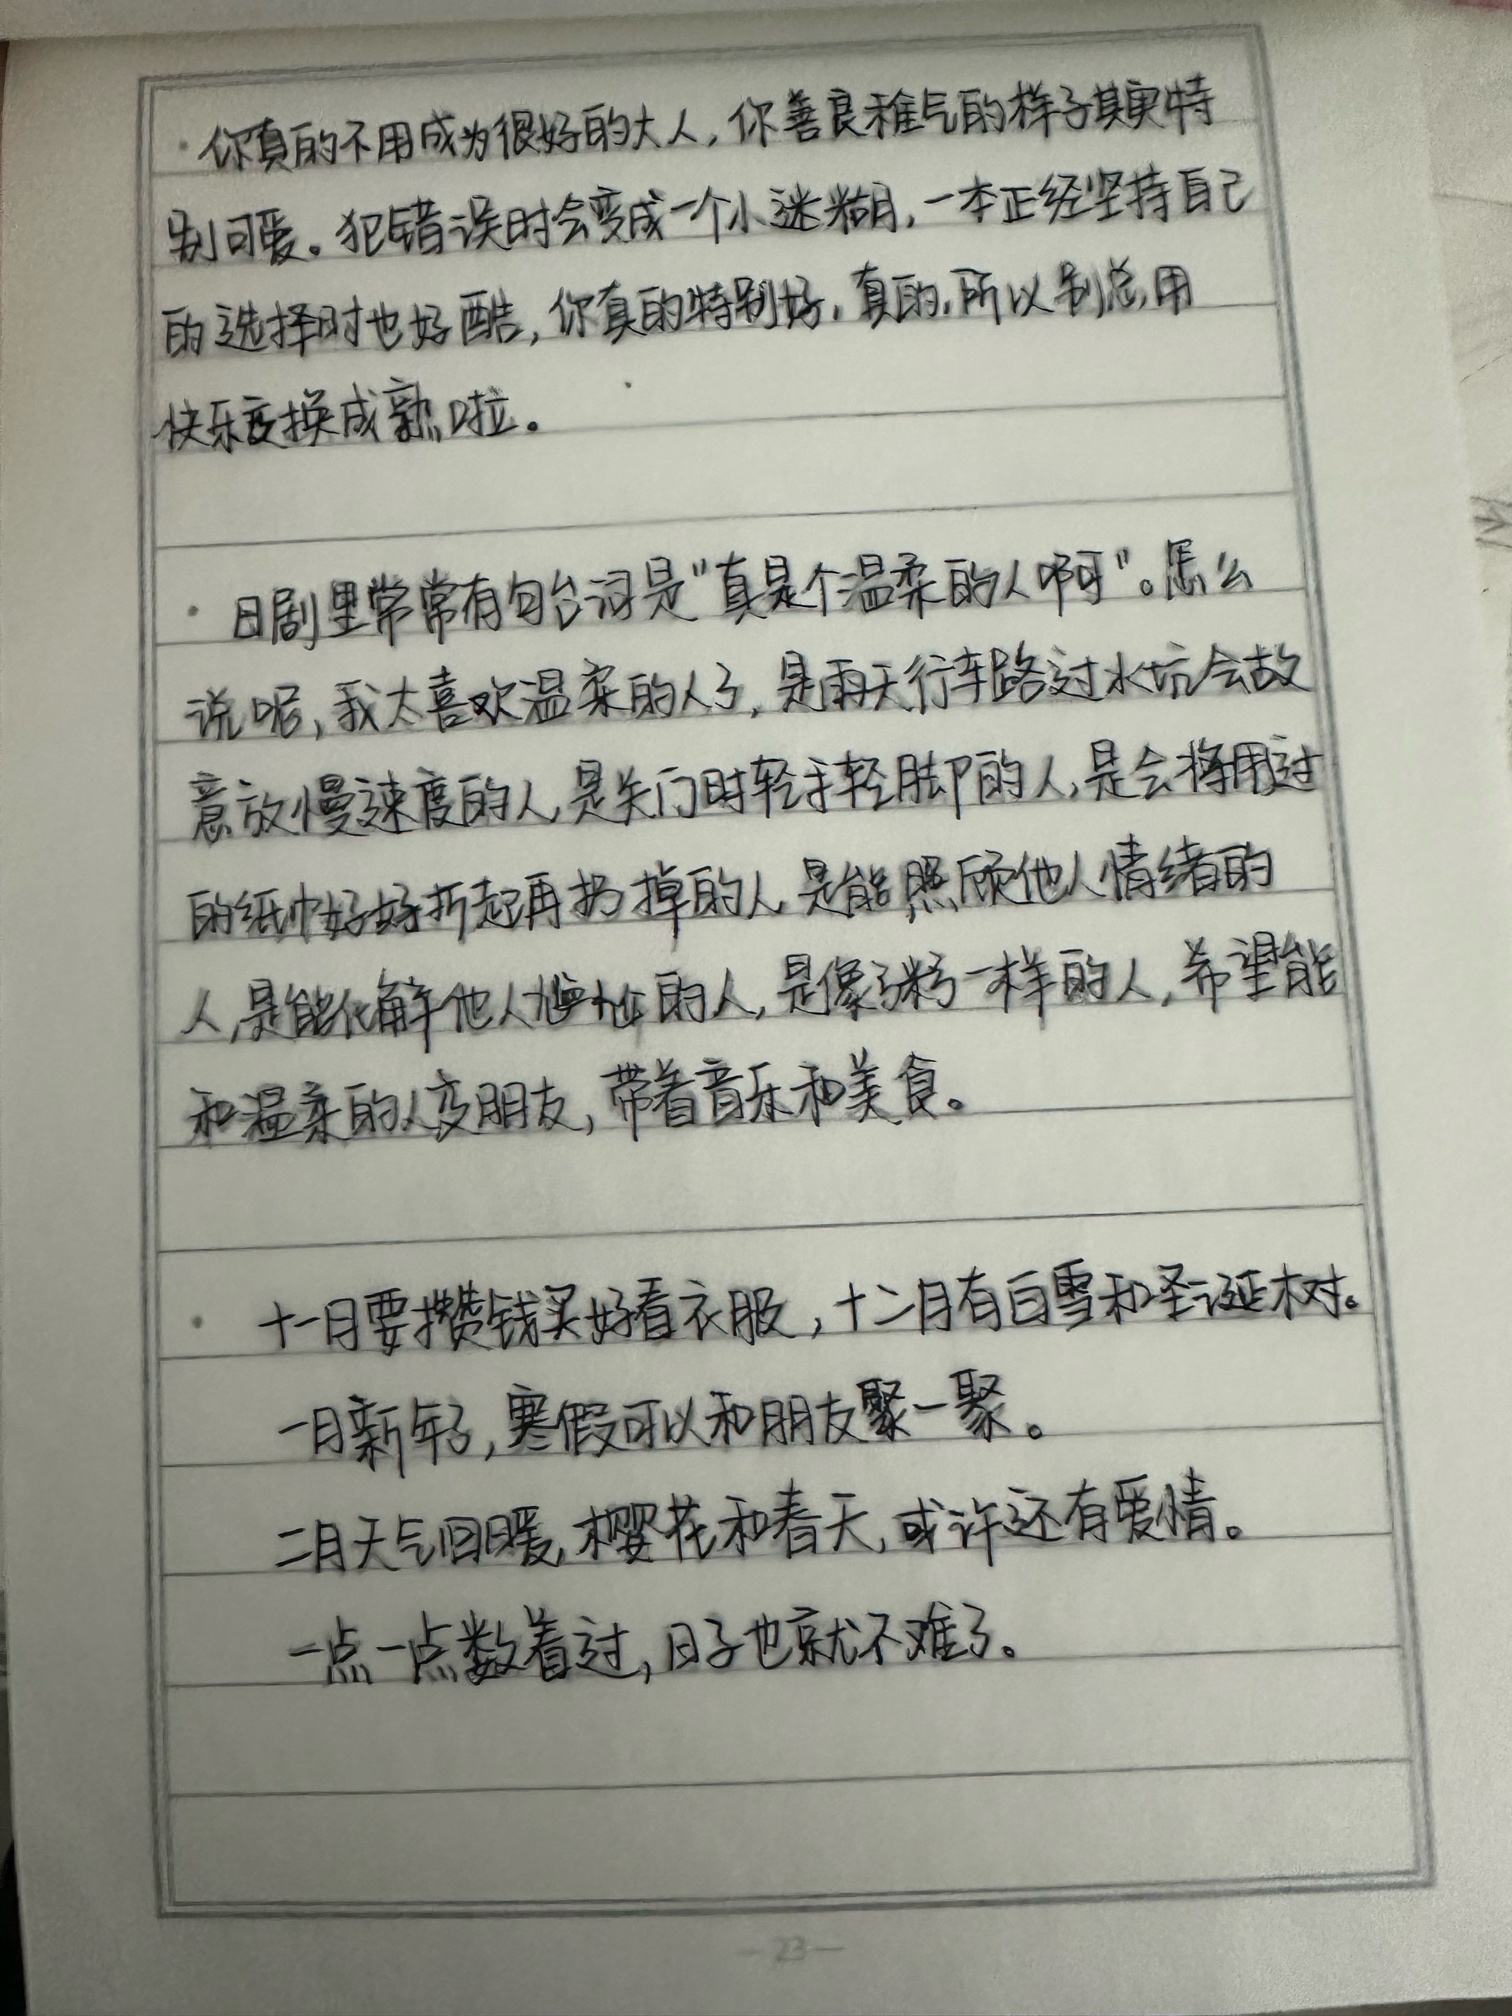 · 你真的不用成为很好的大人，你善良稚气的样子其实特
别可爱。犯错误时会变成一个小迷糊，一本正经坚持自己
的选择时也好酷，你真的特别好，真的，所以别总用
快乐变换成熟啦。
· 日剧里常常有句台词是“真是个温柔的人啊”。怎么
说呢，我太喜欢温柔的人了，是雨天行车路过水坑会故
意放慢速度的人，是关门时轻手轻脚的人，是会将用过
的纸巾好好折起再扔掉的人，是能照顾他人情绪的
人，是能化解他人尴尬的人，是像粥一样的人，希望能
和温柔的人变朋友，带着音乐和美食。
· 十一月要攒钱买好看衣服，十二月有白雪和圣诞树。
一月新年了，寒假可以和朋友聚一聚。
二月天气回暖，樱花和春天，或许还有爱情。
一点一点数着过，日子也就不难了。
— 23 —